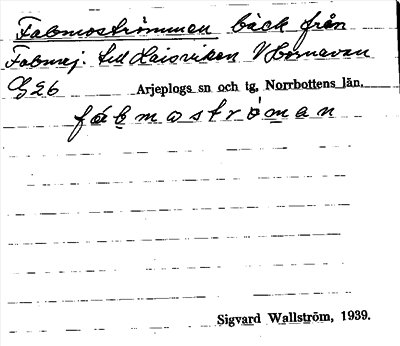 Fabmoströmmen bäck från
Fabmej. till Laisviken V Hornavan
G26 Arjeplogs sn och tg, Norrbottens län.
fábmaströman
Sigvard Wallström, 1939.